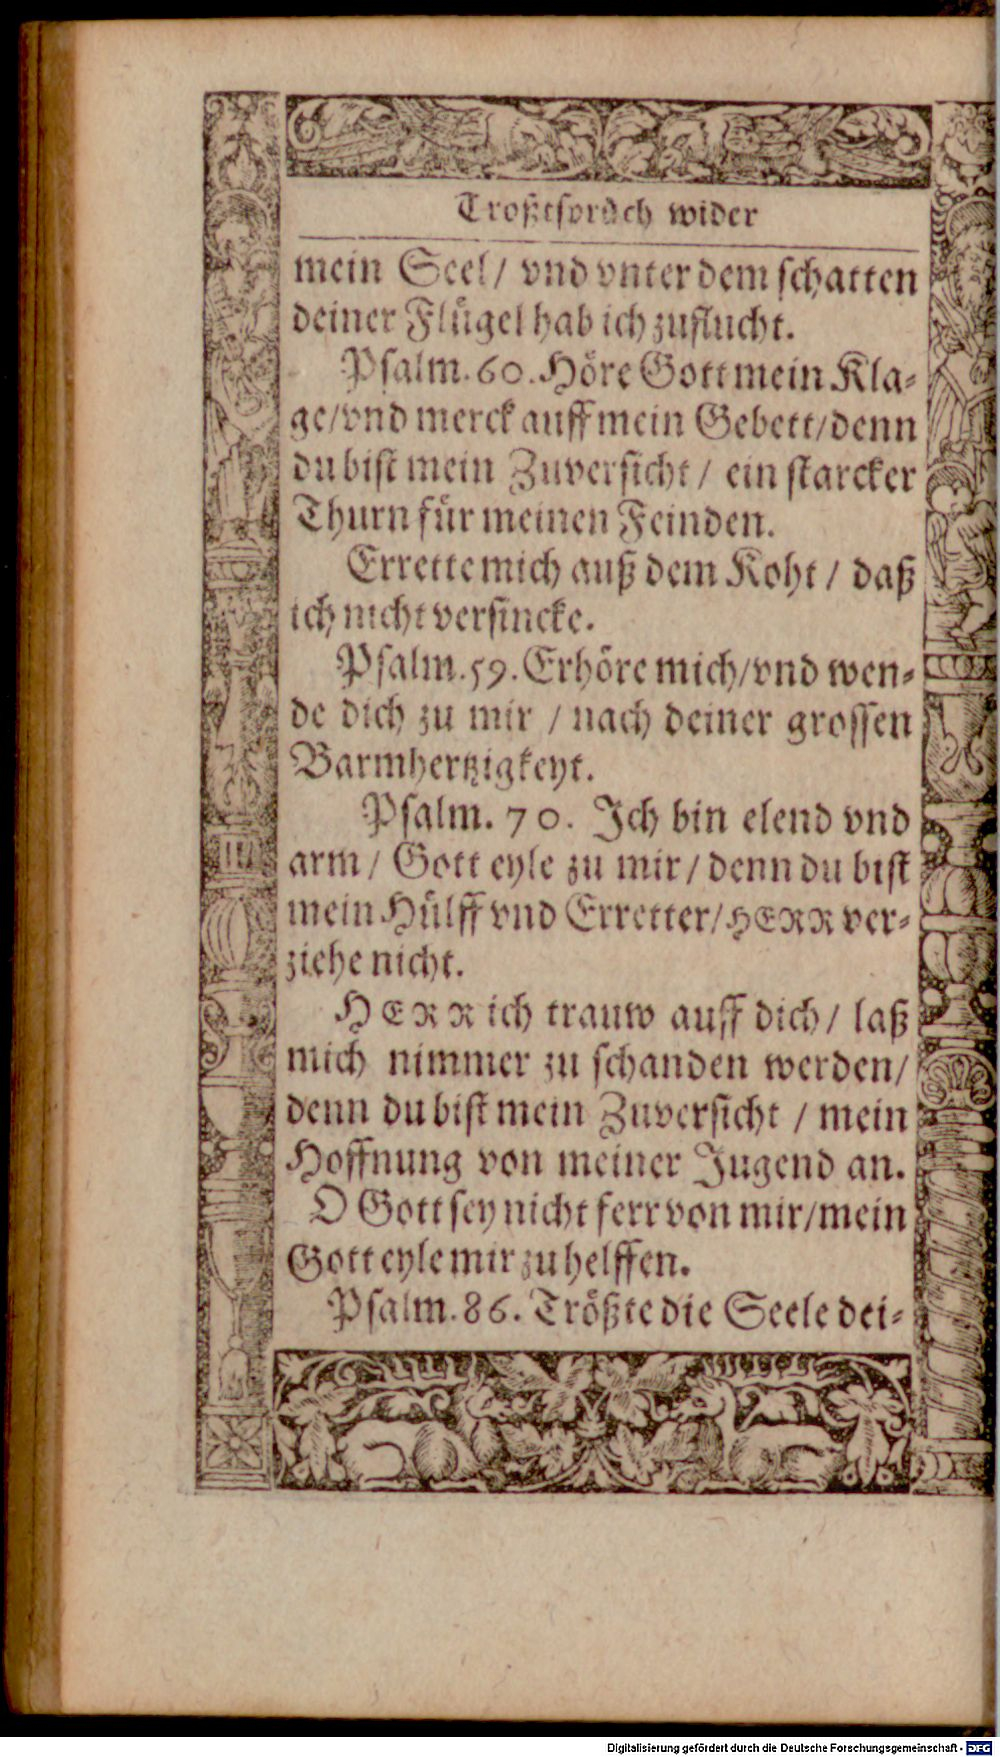 Troßtsprüch wider
mein Seel/ vnd vnter dem schatten
deiner Flügel hab ich zuflucht.
Psalm. 60. Höre Gott mein Kla-
ge/ vnd merck auff mein Gebett/ denn
du bist mein Zuversicht/ ein starcker
Thurn für meinen Feinden.
Errette mich auß dem Koht/ daß
ich nicht versincke.
Psalm. 59. Erhöre mich/ vnd wen-
de dich zu mir/ nach deiner grossen
Barmhertzigkeyt.
Psalm. 70. Ich bin elend vnd
arm/ Gott eyle zu mir/ denn du bist
mein Hülff vnd Erretter/ HERR ver-
ziehe nicht.
HERR ich trauw auff dich/ laß
mich nimmer zu schanden werden/
denn du bist mein Zuversicht/ mein
Hoffnung von meiner Jugend an.
O Gott sey nicht ferr von mir/ mein
Gott eyle mir zu helffen.
Psalm. 86. Trößte die Seele dei-
Digitalisierung gefördert durch die Deutsche Forschungsgemeinschaft - DFG